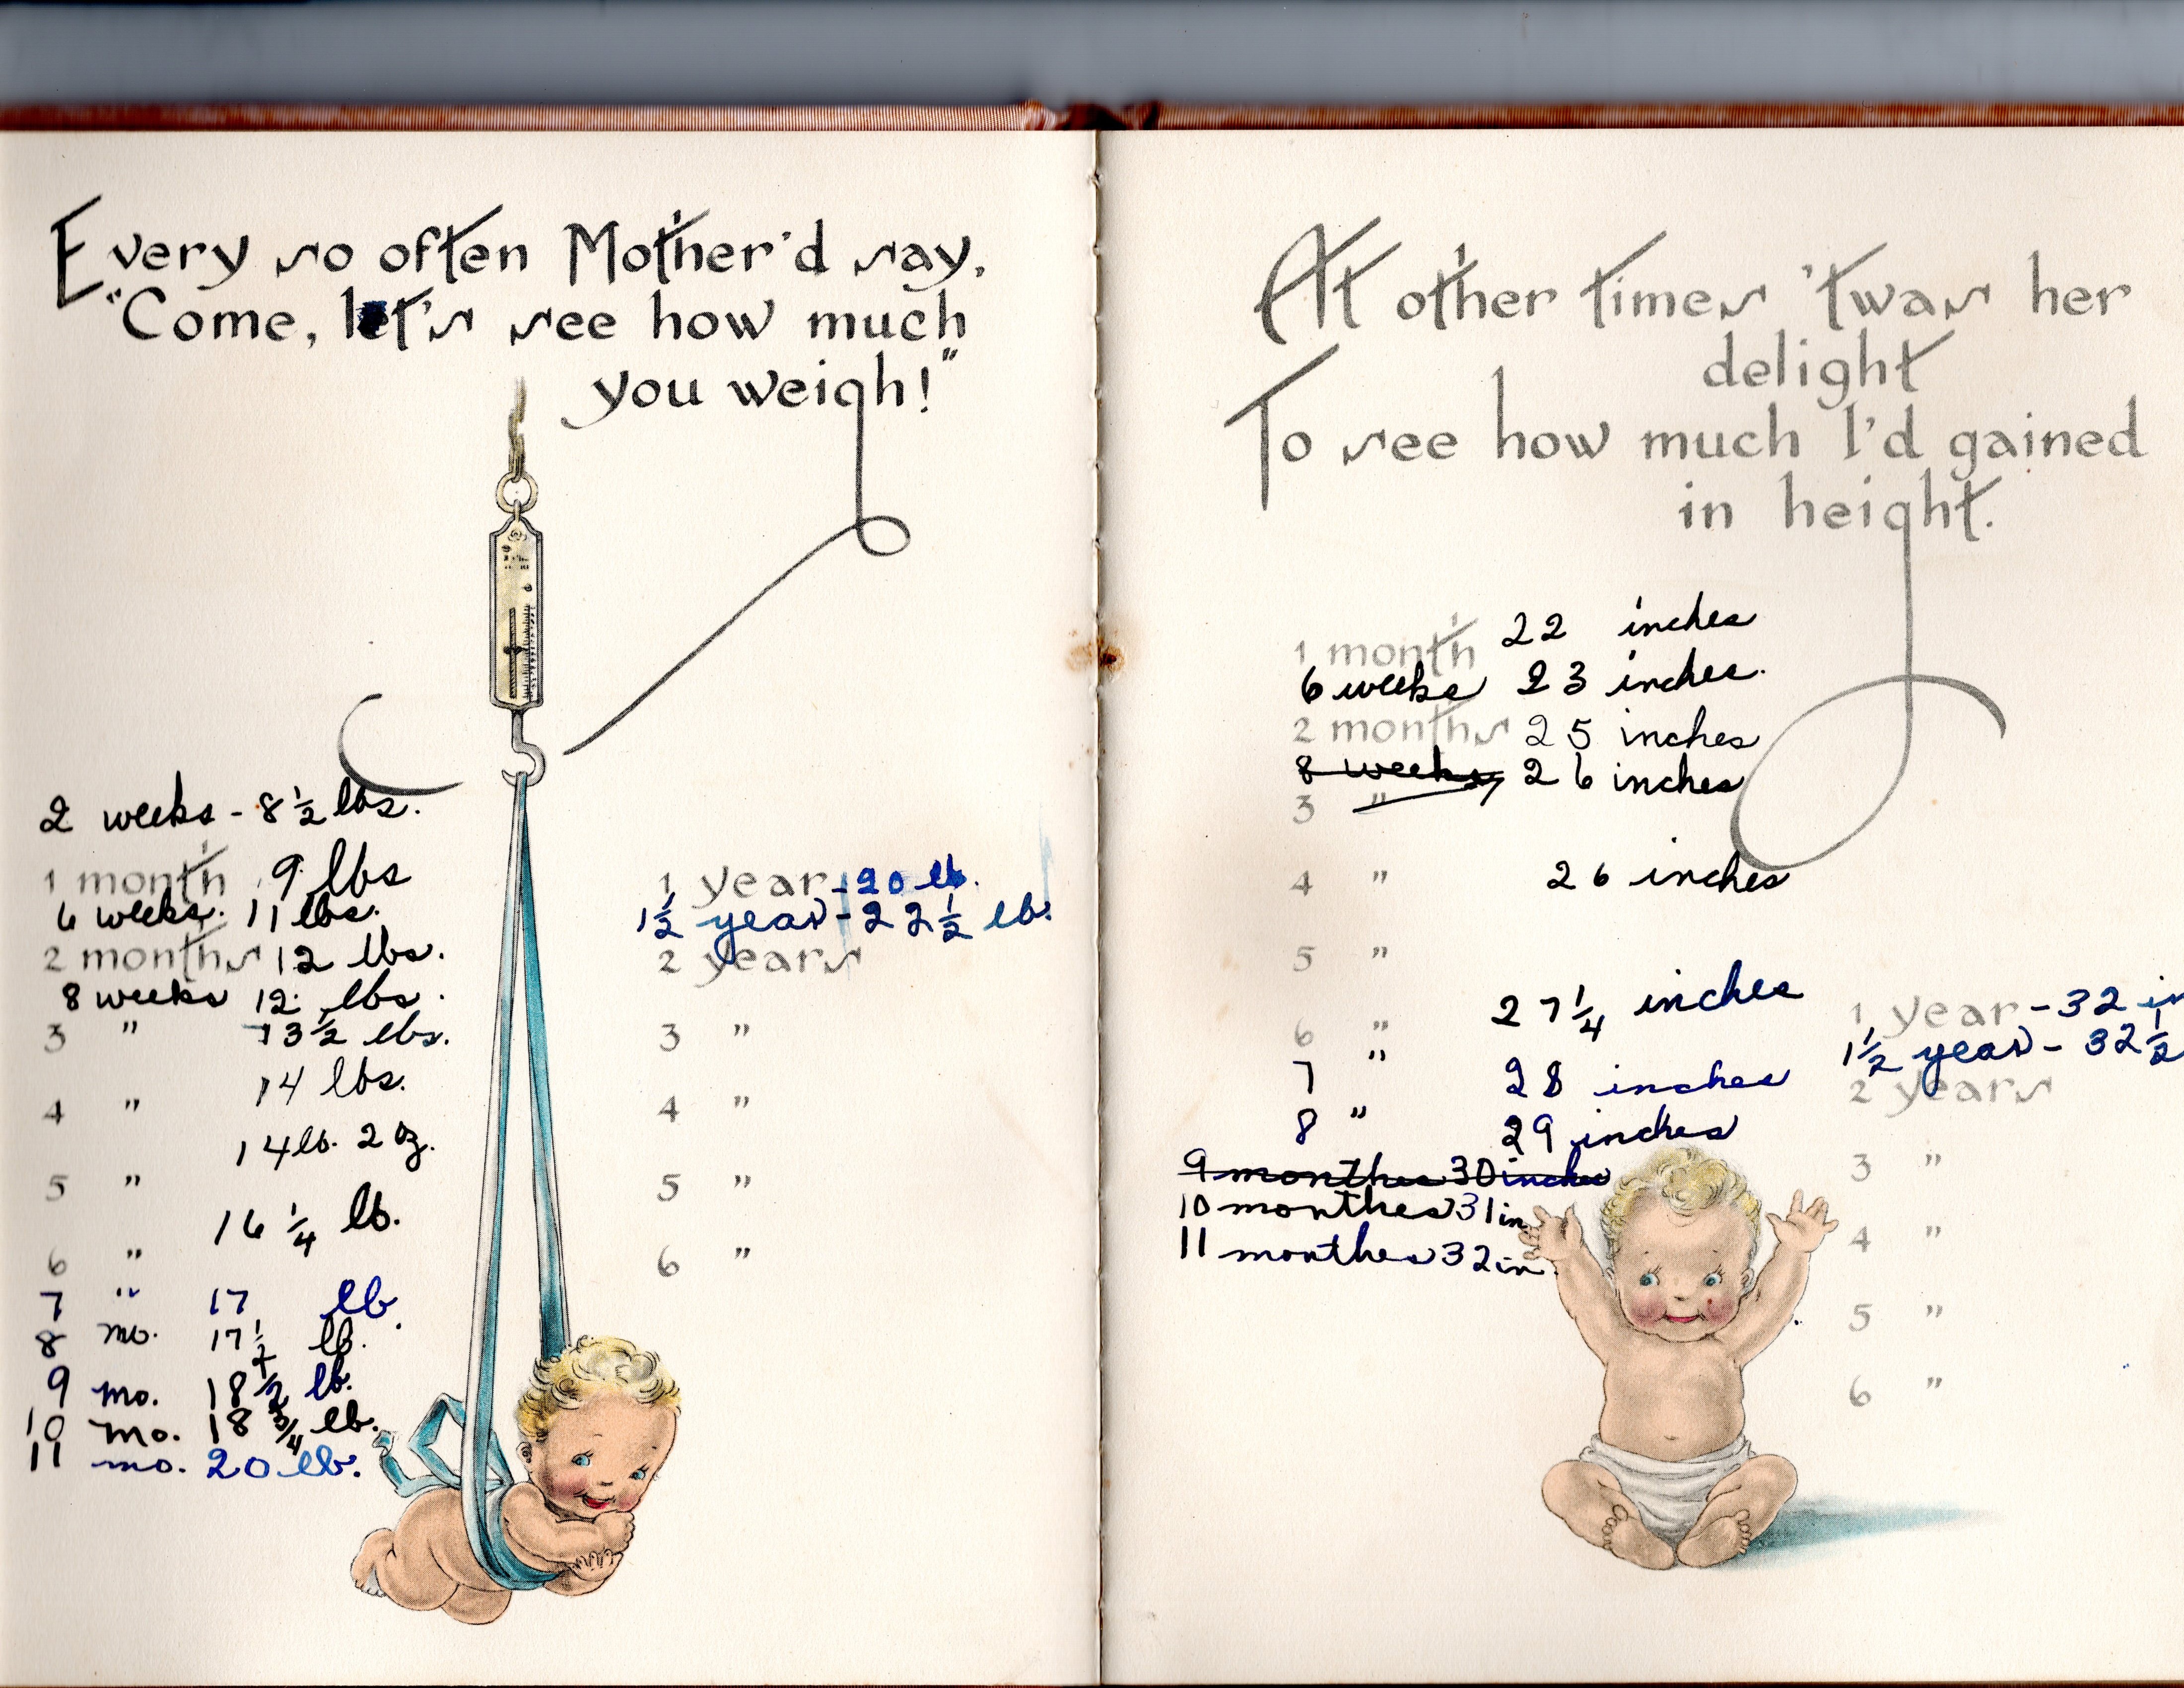 Every so often Mother'd say,
"Come, let's see how much
you weigh!"
2 weeks - 8 1/2 lbs.
1 month 9 lbs
6 weeks. 11 lbs.
2 months 12 lbs.
8 weeks 12 lbs.
3 " 13 1/2 lbs.
14 lbs.
4 "
14 lb. 2 oz.
5 "
16 1/4 lb.
6 "
7 " 17 lb.
8 mo. 17 1/2 lb.
9 mo. 18 1/2 lb.
10 mo. 18 3/4 lb.
11 mo. 20 lb.
1 year - 20 lb.
1 1/2 year - 22 1/2 lb.
2 years
3 "
4 "
5 "
6 "
At other times 'twas her
delight
To see how much I'd gained
in height.
1 month 22 inches
6 weeks 23 inches.
2 months 25 inches
8 weeks 26 inches
3 "
4 " 26 inches
5 "
27 1/4 inches
6 "
7 " 28 inches
8 " 29 inches
9 monthes 30 inches
10 monthes 31 in.
11 monthes 32 in.
1 year - 32 in
1 1/2 year - 32 1/2
2 years
3 "
4 "
5 "
6 "